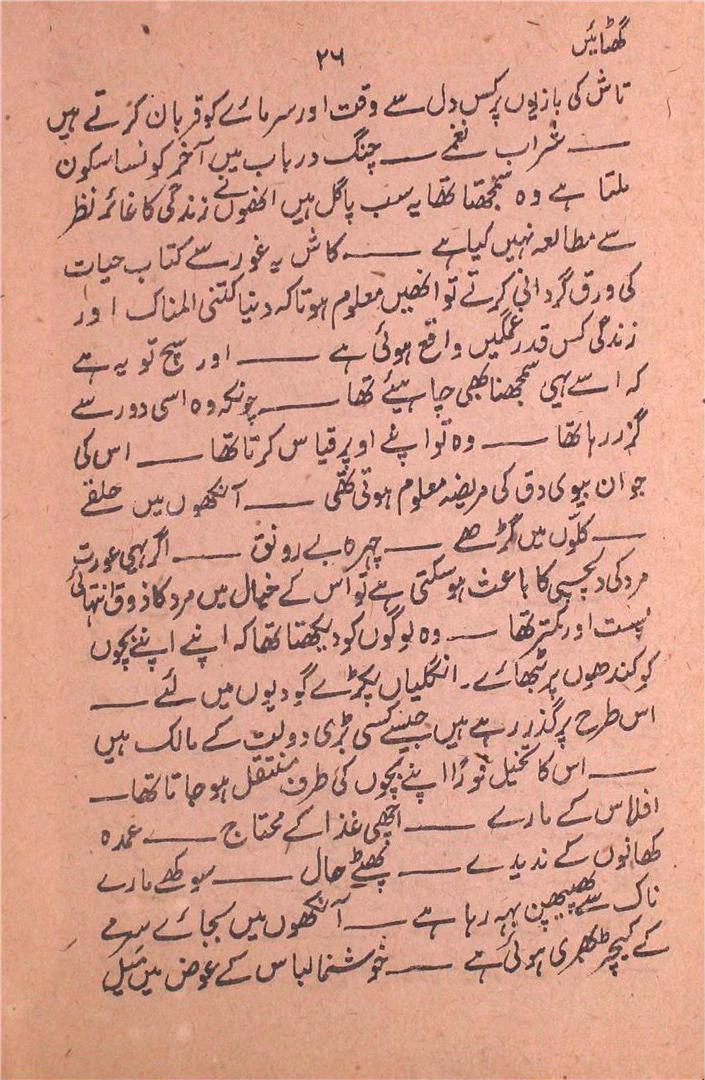 گھٹائیں
۲۶
تاش کی بازیوں پر کس دل سے وقت اور سرمائے کو قربان کرتے ہیں
—— شراب نغمے —— چنگ و رباب میں آخر کونسا سکون
ملتا ہے وہ سمجھتا تھا یہ سب پاگل ہیں انھوں نے زندگی کا غائر نظر
سے مطالعہ نہیں کیا ہے —— کاش یہ غور سے کتاب حیات
کی ورق گردانی کرتے تو انھیں معلوم ہوتا کہ دنیا کتنی المناک اور
زندگی کس قدر غمگیں واقع ہوئی ہے —— اور سچ تو یہ ہے
کہ اسے یہی سمجھنا بھی چاہیئے تھا —— چونکہ وہ اسی دور سے
گزر رہا تھا —— وہ تو اپنے اوپر قیاس کرتا تھا —— اس کی
جوان بیوی دق کی مریضہ معلوم ہوتی تھی —— آنکھوں میں حلقے
—— کلّوں میں گڑھے —— چہرہ بے رونق —— اگر یہی عورت
مرد کی دلچسپی کا باعث ہو سکتی ہے تو اس کے خیال میں مرد کا ذوق انتہائی
پست اور کمتر تھا —— وہ لوگوں کو دیکھتا تھا کہ اپنے اپنے بچوں
کو کندھوں پر بٹھائے۔ انگلیاں پکڑے گودیوں میں لئے ——
اس طرح پر گذر رہے ہیں جیسے کسی بڑی دولت کے مالک ہیں
—— اس کا تخیل فوراً اپنے بچوں کی طرف منتقل ہو جاتا تھا —
افلاس کے مارے —— اچھی غذا کے محتاج —— عمدہ
کھانوں کے ندیدے —— پھٹے حال —— سوکھے مارے
ناک سے بہہ رہا ہے —— آنکھوں میں بجائے سرمے
کے کیچڑ بھری ہوئی ہے —— خوشنما لباس کے عوض میں میل